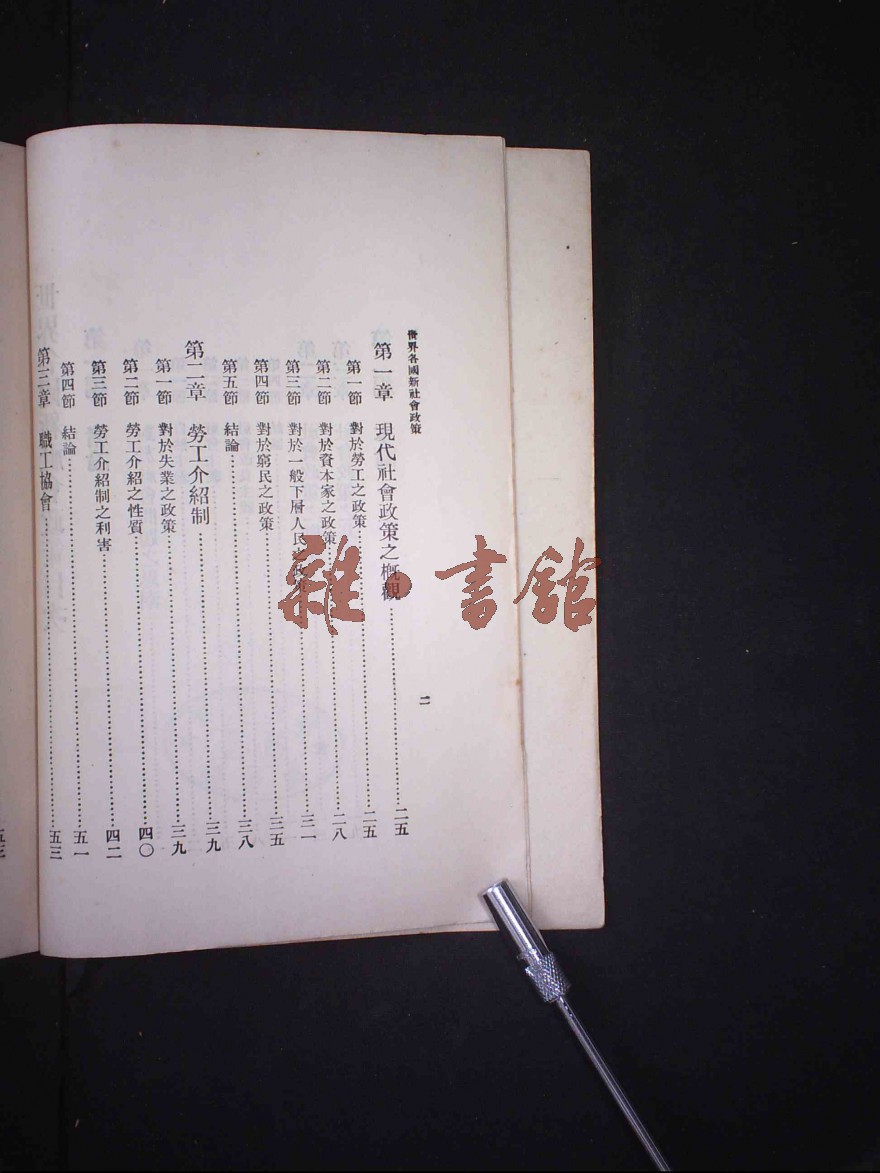 世界各國新社會政策
二
第一章 現代社會政策之概觀……二五
第一節 對於勞工之政策……二五
第二節 對於資本家之政策……二八
第三節 對於一般下層人民之政策……三一
第四節 對於窮民之政策……三五
第五節 結論……三八
第二章 勞工介紹制……三九
第一節 對於失業之政策……三九
第二節 勞工介紹之性質……四〇
第三節 勞工介紹制之利害……四二
第四節 結論……五一
第三章 職工協會……五三
雜·書館